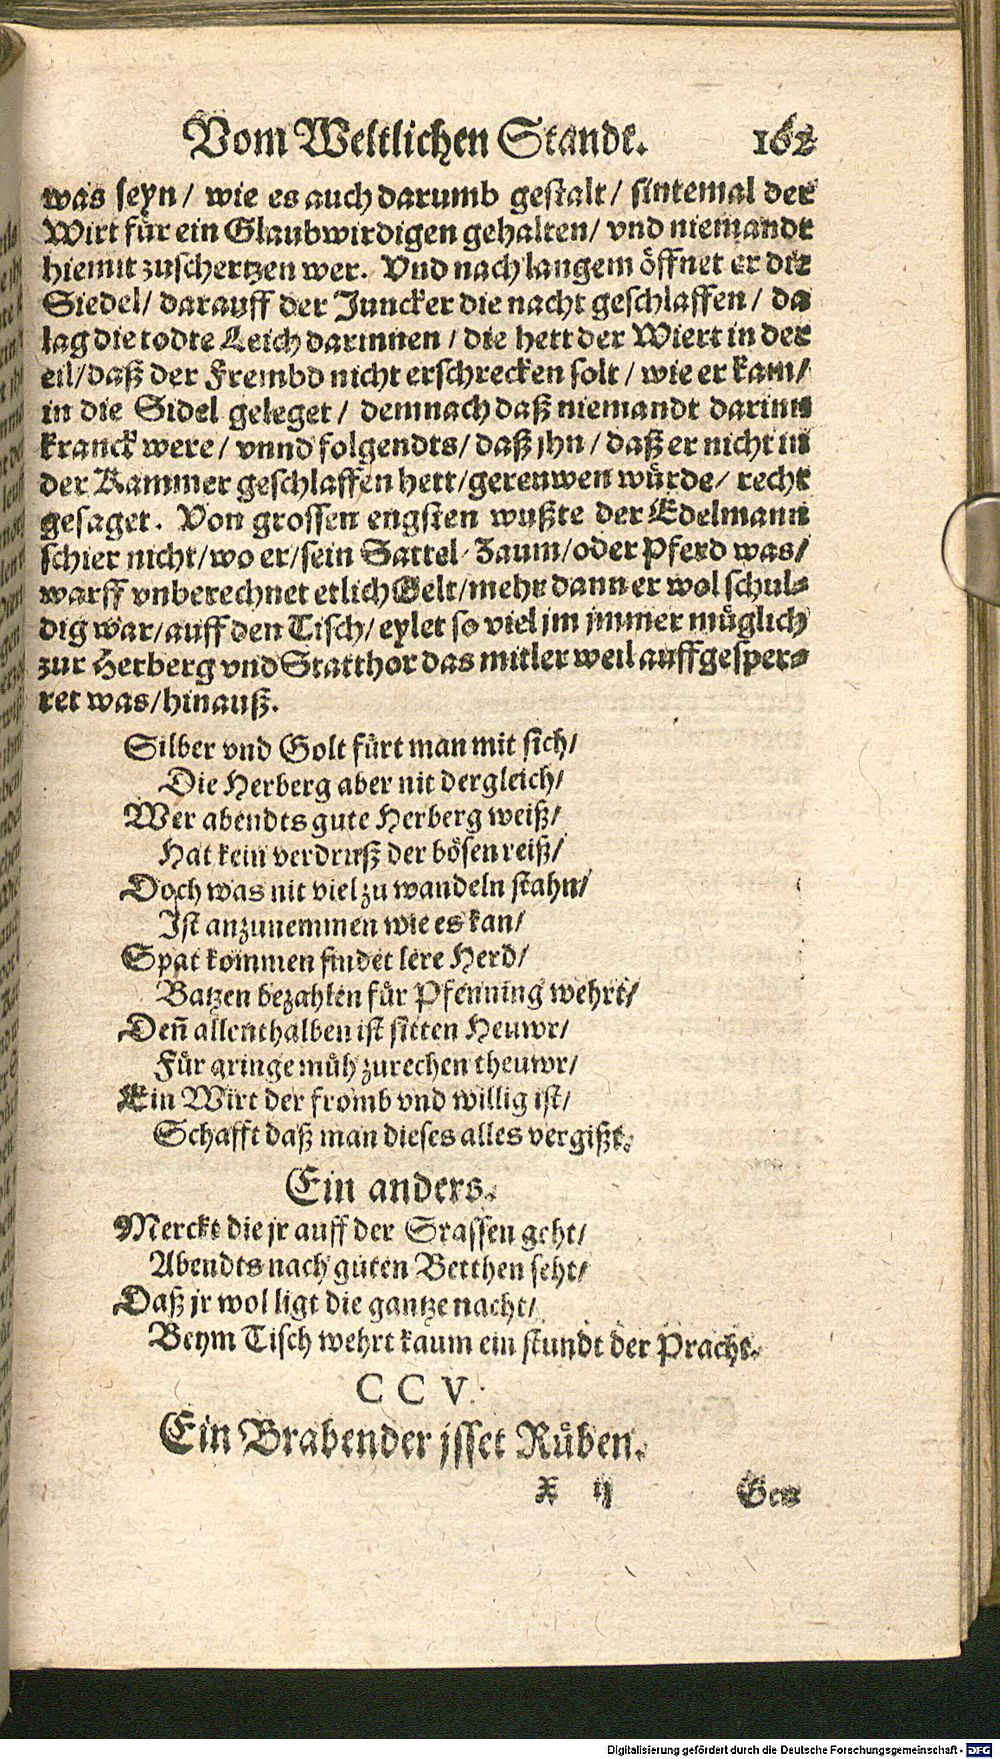 Vom Weltlichen Standt. 162
was seyn / wie es auch darumb gestalt / sintemal der
Wirt für ein Glaubwirdigen gehalten / vnd niemandt
hiemit zuschertzen wer. Vnd nach langem öffnet er die
Siedel / darauff der Juncker die nacht geschlaffen / da
lag die todte Leich darinnen / die hett der Wiert in der
eil / daß der Frembd nicht erschrecken solt / wie er kam /
in die Sidel geleget / demnach daß niemandt darinn
kranck were / vnnd folgendts / daß jhn / daß er nicht in
der Kammer geschlaffen hett / gerenwen würde / recht
gesaget. Von grossen engsten wußte der Edelmann
schier nicht / wo er / sein Sattel / Zaum / oder Pferd was /
warff vnberechnet etlich Gelt / mehr dann er wol schul-
dig war / auff den Tisch / eylet so viel jm jmmer müglich
zur Herberg vnd Statthor das mitler weil auffgesper-
ret was / hinauß.
Silber vnd Golt fürt man mit sich /
Die Herberg aber nit dergleich /
Wer abendts gute Herberg weiß /
Hat kein verdruß der bösen reiß /
Doch was nit viel zu wandeln stahn /
Ist anzunemmen wie es kan /
Spat kommen findet lere Herd /
Batzen bezahlen für Pfenning wehrt /
Deñ allenthalben ist sitten Heuwr /
Für gringe müh zurechen theuwr /
Ein Wirt der fromb vnd willig ist /
Schafft daß man dieses alles vergißt.
Ein anders.
Merckt die jr auff der Srassen geht /
Abendts nach guten Betthen seht /
Daß jr wol ligt die gantze nacht /
Beym Tisch wehrt kaum ein stundt der Pracht.
C C V.
Ein Brabender jsset Rüben.
X ij
Digitalisierung gefördert durch die Deutsche Forschungsgemeinschaft - DFG